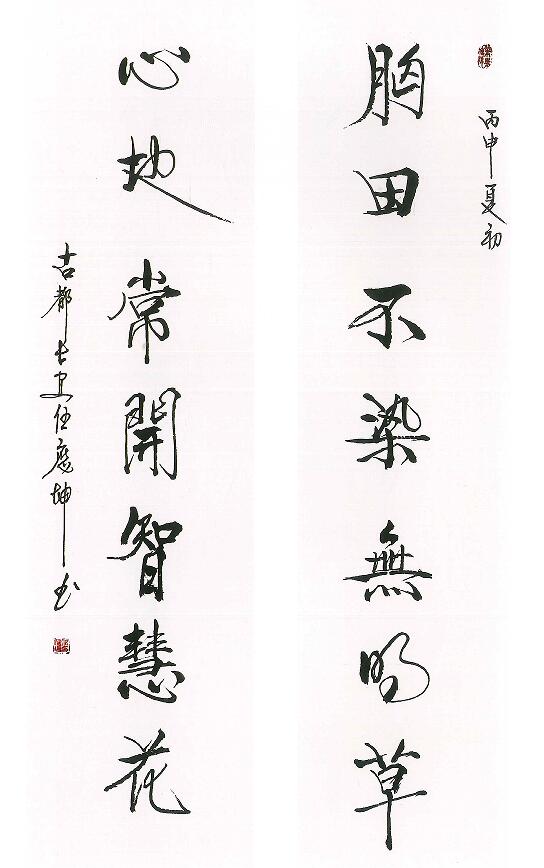 丙申夏初
胸田不染無明草
心地常開智慧花
古都長安任應坤書